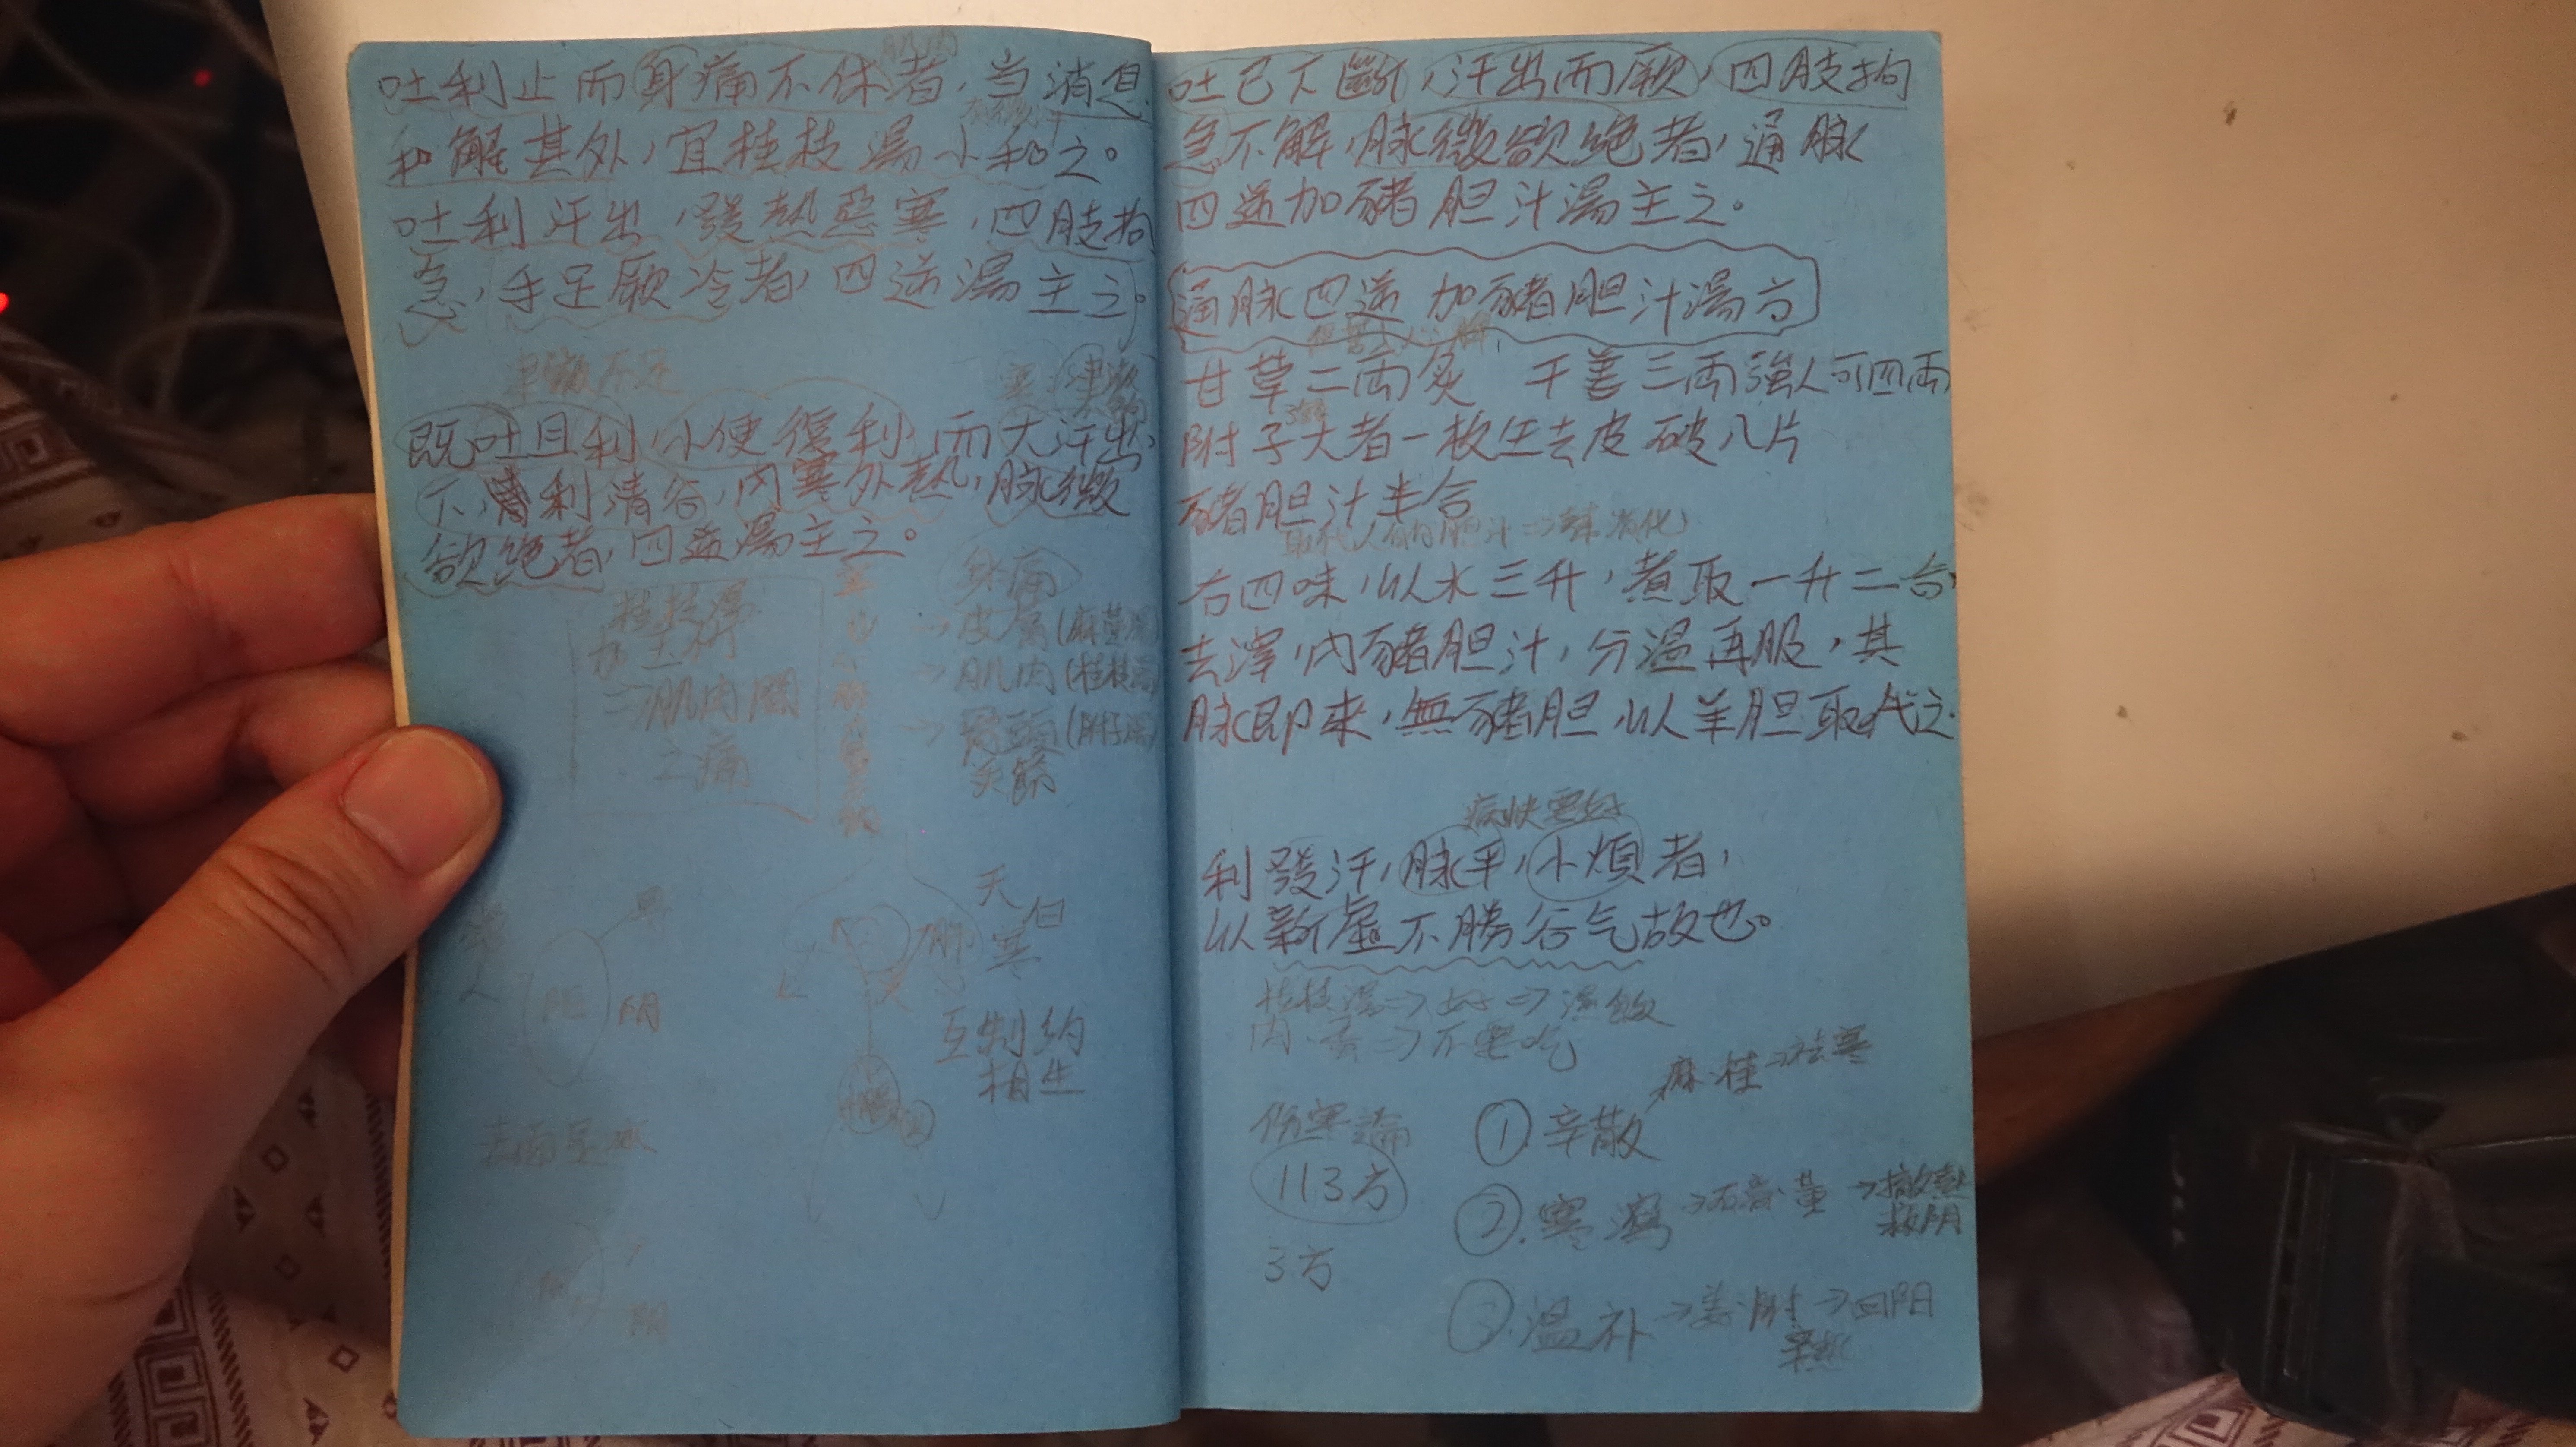 吐利止而身痛不休者,当消息
和解其外,宜桂枝湯小和之。
吐利汗出,發熱惡寒,四肢拘
急,手足厥冷者,四逆湯主之。
津液不足
既吐且利,小便復利,而大汗出,
下利清谷,內寒外热,脉微
欲绝者,四逆湯主之。
身痛
桂枝湯
→皮膚(麻黄湯)
→肌肉(桂枝湯)
⇒肌肉関
→骨頭(附子湯)
之痛
关節
天
寒
互制约
相生
表面是
阴
吐已下斷,汗出而厥,四肢拘
急不解,脉微欲绝者,通脉
四逆加豬胆汁湯主之。
通脉四逆加豬胆汁湯方
甘草二兩炙 干姜三兩強人可四兩
附子大者一枚生去皮破八片
豬胆汁半合
取代人的胆汁⇒幫消化
右四味,以水三升,煮取一升二合
去滓,内豬胆汁,分温再服,其
脉即来,無豬胆,以羊胆取代之.
病快要好
利發汗,脉平,小煩者,
以新虛不勝谷气故也。
桂枝湯⇒
肉.蛋⇒不要吃
伤寒論
113方
3方
麻.桂→祛寒
① 辛散
②. 寒瀉→石膏.黄→
救阴
③. 温补→姜.附→回阳